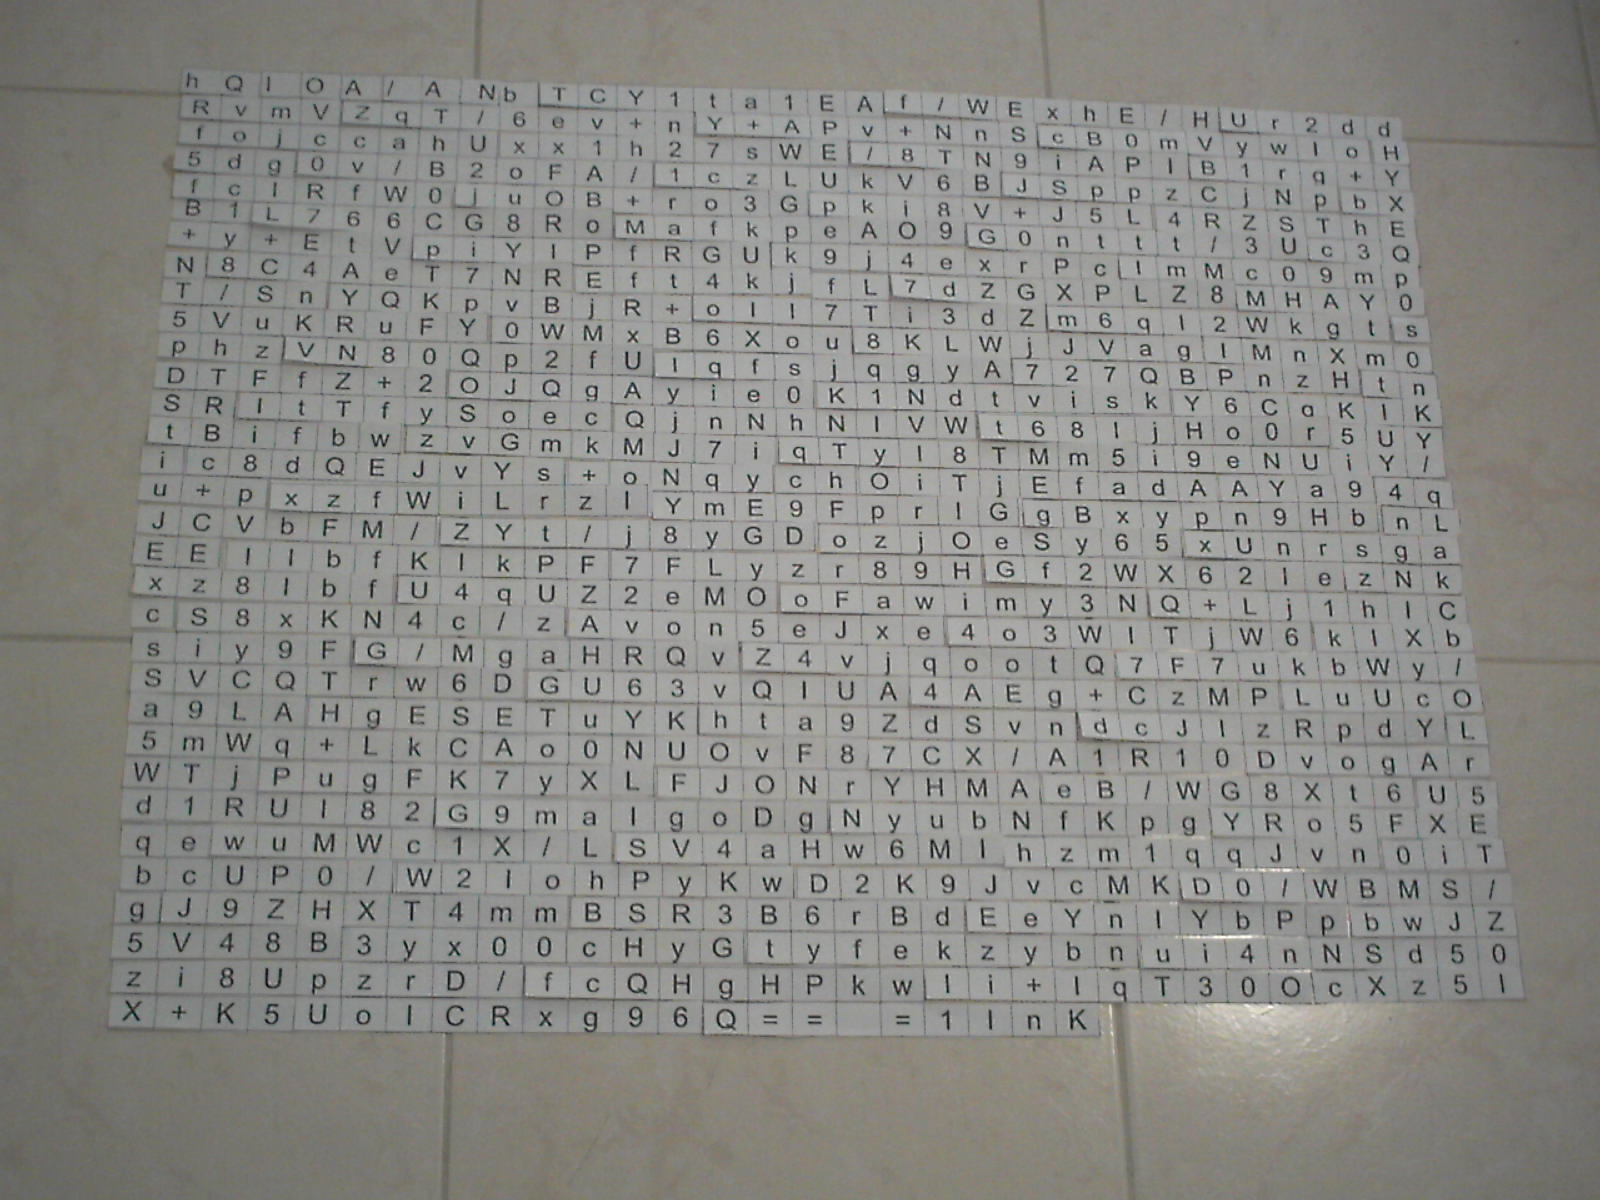 h Q I O A / A N b T C Y 1 t a 1 E A f / W E x h E / H U r 2 d d
R v m V Z q T / 6 e v + n Y + A P v + N n S c B 0 m V y w I o H
f o j c c a h U x x 1 h 2 7 s W E / 8 T N 9 i A P I B 1 r q + Y
5 d g 0 v / B 2 o F A / 1 c z L U k V 6 B J S p p z C j N p b X
f c I R f W 0 j u O B + r o 3 G p k i 8 V + J 5 L 4 R Z S T h E
B 1 L 7 6 6 C G 8 R o M a f k p e A O 9 G 0 n t t t / 3 U c 3 Q
+ y + E t V p i Y I P f R G U k 9 j 4 e x r P c I m M c 0 9 m p
N 8 C 4 A e T 7 N R E f t 4 k j f L 7 d Z G X P L Z 8 M H A Y 0
T / S n Y Q K p v B j R + o I I 7 T i 3 d Z m 6 q I 2 W k g t s
5 V u K R u F Y 0 W M x B 6 X o u 8 K L W j J V a g I M n X m 0
p h z V N 8 0 Q p 2 f U I q f s j q g y A 7 2 7 Q B P n z H t n
D T F f Z + 2 O J Q g A y i e 0 K 1 N d t v i s k Y 6 C q K I K
S R I t T f y S o e c Q j n N h N I V W t 6 8 I j H o 0 r 5 U Y
t B i f b w z v G m k M J 7 i q T y I 8 T M m 5 i 9 e N U i Y /
i c 8 d Q E J v Y s + o N q y c h O i T j E f a d A A Y a 9 4 q
u + p x z f W i L r z I Y m E 9 F p r I G g B x y p n 9 H b n L
J C V b F M / Z Y t / j 8 y G D o z j O e S y 6 5 x U n r s g a
E E I I b f K I k P F 7 F L y z r 8 9 H G f 2 W X 6 2 I e z N k
x z 8 I b f U 4 q U Z 2 e M O o F a w i m y 3 N Q + L j 1 h I C
c S 8 x K N 4 c / z A v o n 5 e J x e 4 o 3 W I T j W 6 k I X b
s i y 9 F G / M g a H R Q v Z 4 v j q o o t Q 7 F 7 u k b W y /
S V C Q T r w 6 D G U 6 3 v Q I U A 4 A E g + C z M P L u U c O
a 9 L A H g E S E T u Y K h t a 9 Z d S v n d c J I z R p d Y L
5 m W q + L k C A o 0 N U O v F 8 7 C X / A 1 R 1 0 D v o g A r
W T j P u g F K 7 y X L F J O N r Y H M A e B / W G 8 X t 6 U 5
d 1 R U I 8 2 G 9 m a I g o D g N y u b N f K p g Y R o 5 F X E
q e w u M W c 1 X / L S V 4 a H w 6 M I h z m 1 q q J v n 0 i T
b c U P 0 / W 2 I o h P y K w D 2 K 9 J v c M K D 0 / W B M S /
g J 9 Z H X T 4 m m B S R 3 B 6 r B d E e Y n I Y b P p b w J Z
5 V 4 8 B 3 y x 0 0 c H y G t y f e k z y b n u i 4 n N S d 5 0
z i 8 U p z r D / f c Q H g H P k w I i + I q T 3 0 O c X z 5 I
X + K 5 U o I C R x g 9 6 Q = = = 1 I n K